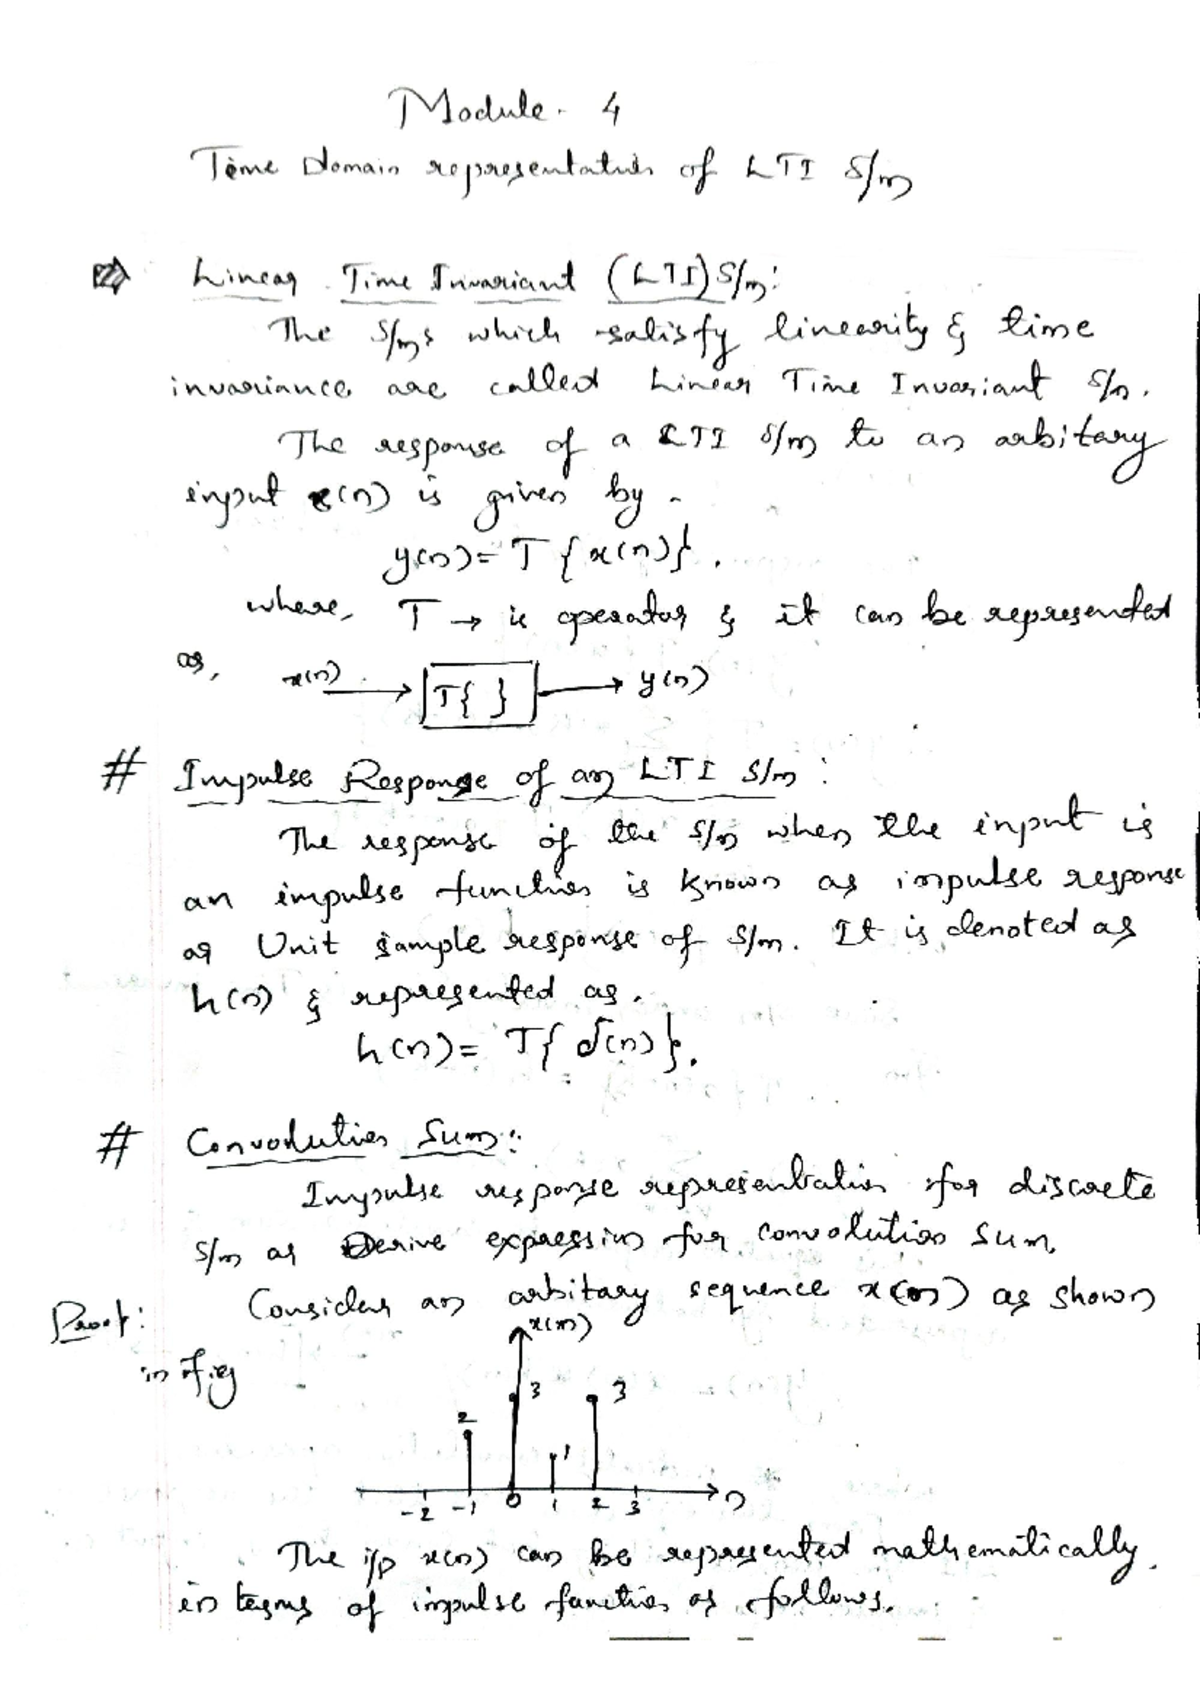 Module - 4
Time Domain representation of LTI S/m
Linear Time Invariant (LTI) S/m:
The S/ms which satisfy linearity & time
invariance are called Linear Time Invariant S/m.
The response of a LTI S/m to an arbitary
input x(n) is given by -
y(n) = T{x(n)}.
where, T → is operator & it can be represented
as, x(n) → T{ } → y(n)
# Impulse Response of an LTI S/m:
The response of the S/m when the input is
an impulse function is known as impulse response
or Unit sample response of S/m. It is denoted as
h(n) & represented as.
h(n) = T{δ(n)}.
# Convolution Sum:
Impulse response representation for discrete
S/m or Derive expression for convolution sum.
Proof: Consider an arbitary sequence x(n) as shown
in fig
x(n)
2 3 1 3
-2 -1 0 1 2 3 n
The i/p x(n) can be represented mathematically
in terms of impulse function as follows.